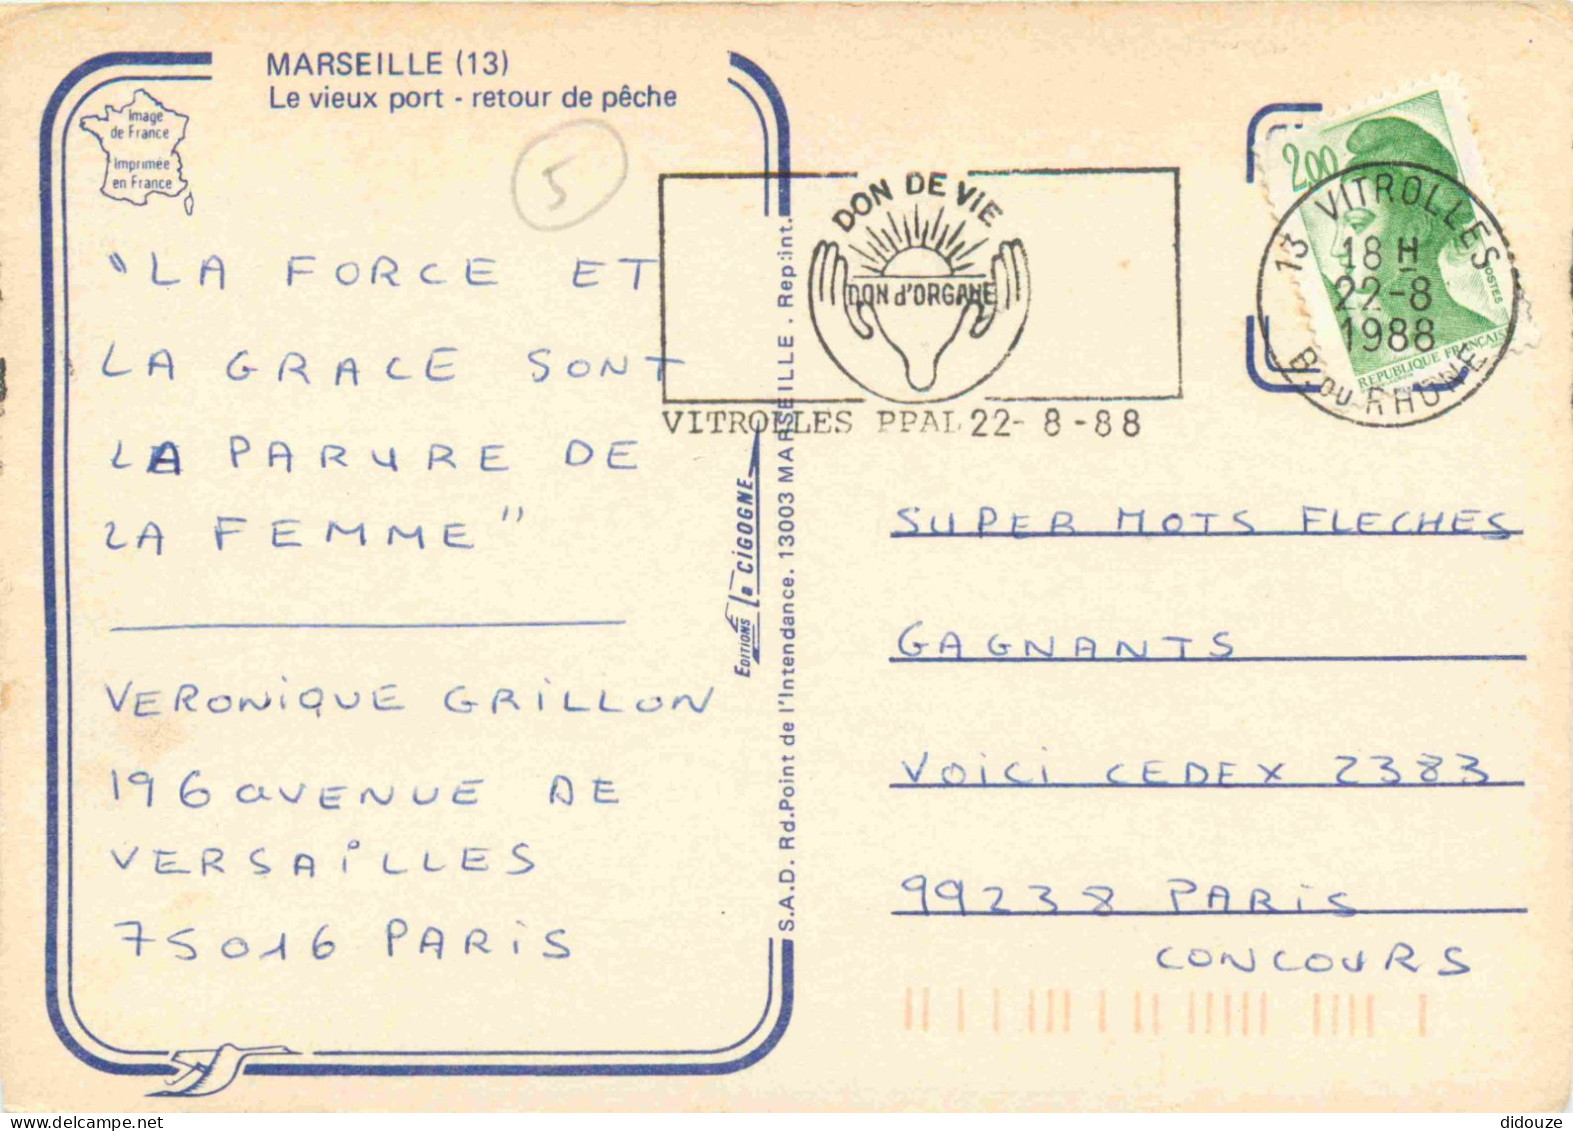 MARSEILLE (13)
Le vieux port - retour de pêche
Image
de France
Imprimée
en France
5
"LA FORCE ET
LA GRACE SONT
LA PARURE DE
LA FEMME"
VERONIQUE GRILLON
196 avENUE DE
VERSAILLES
75016 PARIS
DON DE VIE
DON d'ORGANE
VITROLLES PPAL 22- 8 -88
EDITIONS la CIGOGNE
S.A.D. Rd.Point de l'Intendance. 13003 MARSEILLE . Rep:int.
2,00
POSTES
REPUBLIQUE FRANÇAISE
13 VITROLLES
18 H
22-8
1988
B. DU RHONE
SUPER MOTS FLECHES
GAGNANTS
VOICI CEDEX 2383
99238 PARIS
CONCOURS
didouze